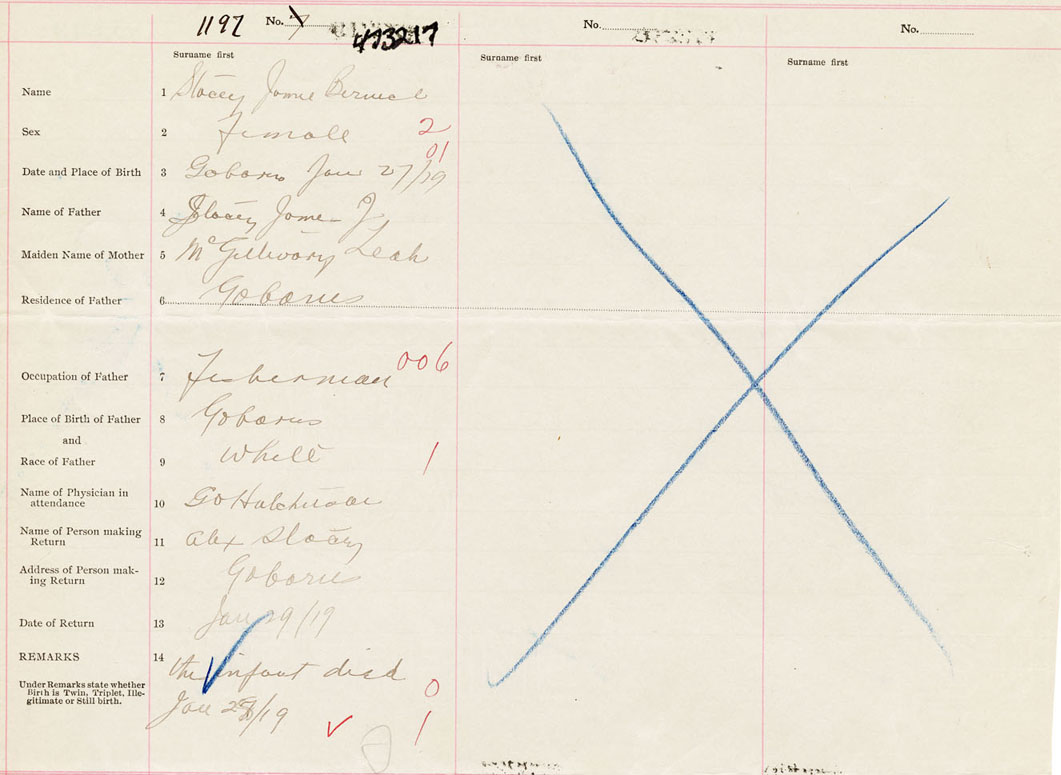 1197 No. 7 473217 No. No.
Surname first Surname first Surname first
Name 1 Stacey
Sex 2 Female 2
01
Date and Place of Birth 3 Gabarus Jan 27/19
Name of Father 4 Stacey James J
Maiden Name of Mother 5 McGillivary Leah
Residence of Father 6 Gabarus
Occupation of Father 7 Fisherman 006
Place of Birth of Father 8 Gabarus
and
Race of Father 9 White 1
Name of Physician in
attendance 10 Hutchinson
Name of Person making
Return 11 Alex Stacey
Address of Person mak-
ing Return 12 Gabarus
Date of Return 13 Jan 29/19
REMARKS 14 the infant died
Under Remarks state whether
Birth is Twin, Triplet, Ille- 0
gitimate or Still birth. Jan 28/19
1